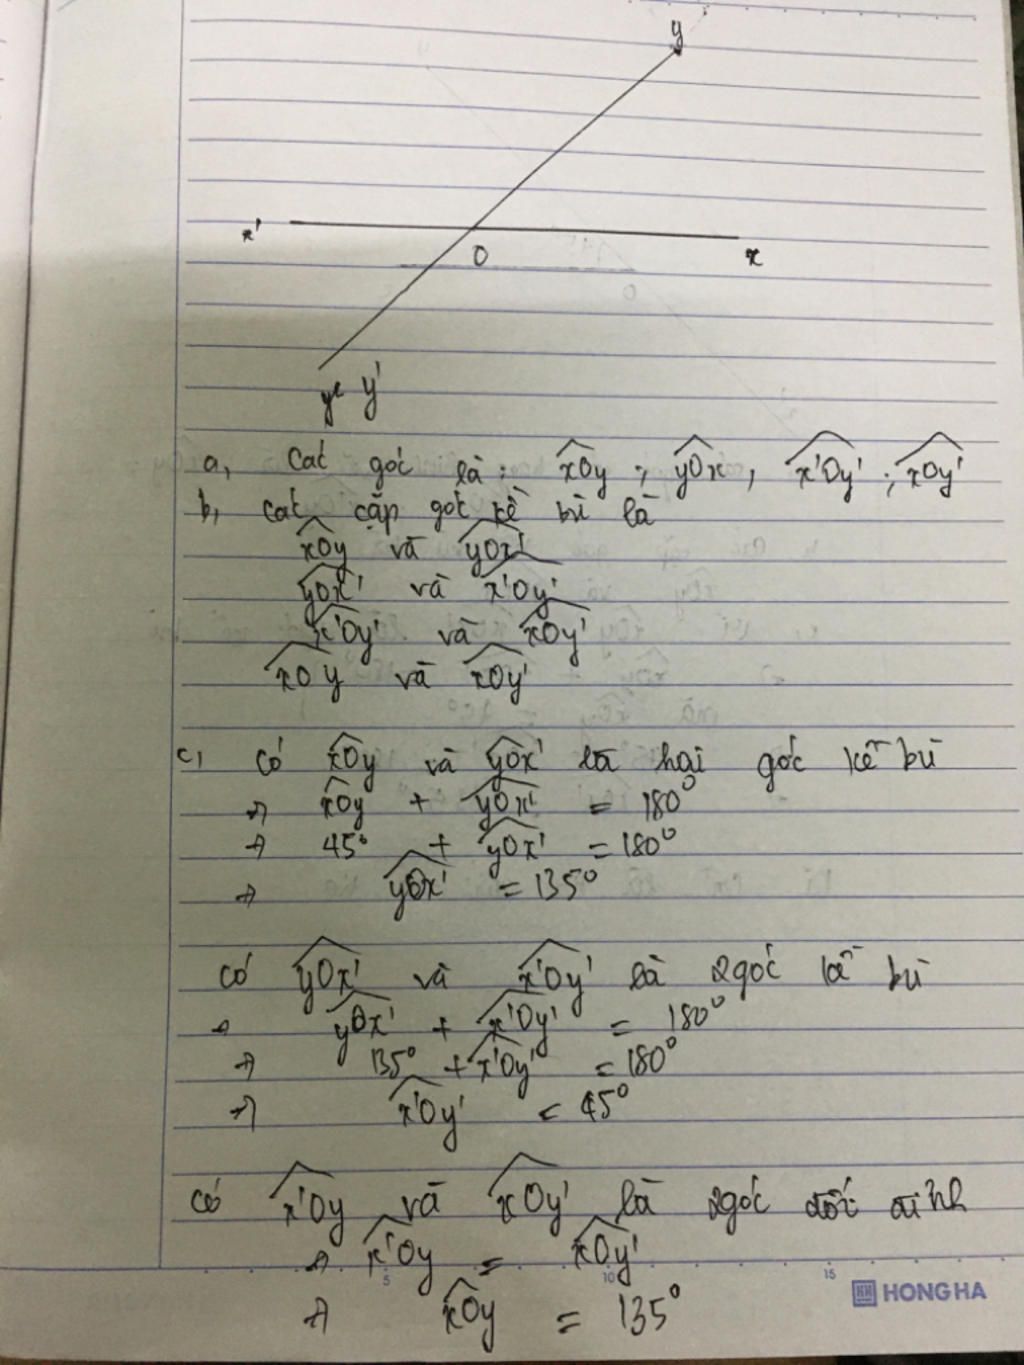 y
x'
O
x
y'
a, Các góc là: xOy ; yOx, x'Oy' ; xOy'
b, các cặp góc kề bù là
xOy và yOx'
yOx' và x'Oy'
x'Oy' và xOy'
xOy và xOy'
c, Có xOy và yOx' là hai góc kề bù
⇒ xOy + yOx' = 180°
⇒ 45° + yOx' = 180°
⇒ yOx' = 135°
Có yOx' và x'Oy' là 2 góc kề bù
⇒ yOx' + x'Oy' = 180°
⇒ 135° + x'Oy' = 180°
⇒ x'Oy' = 45°
Có x'Oy và xOy' là 2 góc đối đỉnh
⇒ x'Oy = xOy'
5 10 15
HONG HA
⇒ xOy = 135°